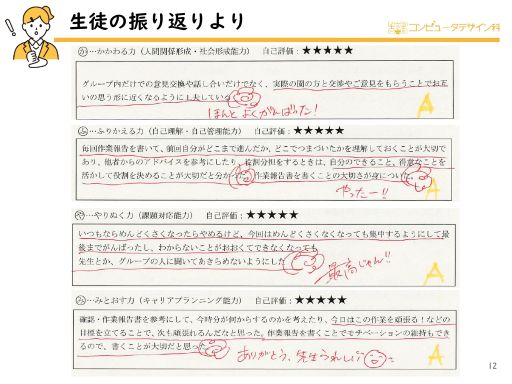 生徒の振り返りより
コンピュータデザイン科
か…かかわる力（人間関係形成・社会形成能力） 自己評価：★★★★★
グループ内だけでの意見交換や話し合いだけでなく、実際の園の方と交渉やご意見をもらうことでお互
いの思う形に近くなるように工夫している
ほんと よく がんばった！
A
ふ…ふりかえる力（自己理解・自己管理能力） 自己評価：★★★★★
毎回作業報告を書いて、前回自分がどこまで進んだか、どこでつまづいたかを理解しておくことが大切で
あり、他者からのアドバイスを参考にしたり、役割分担をするときは、自分のできること、得意なことを
活かして役割を決めることが大切だと分かった 作業報告書を書くことの大切さが身について
やったー!!
A
や…やりぬく力（課題対応能力） 自己評価：★★★★★
いつもならめんどくさくなったらやめるけど、今回はめんどくさくなくなっても集中するようにして最
後までがんばったし、わからないことがおおくてできなくなっても
先生とか、グループの人に聞いてあきらめないようにした
最高じゃん!!
A
み…みとおす力（キャリアプランニング能力） 自己評価：★★★★★
確認・作業報告書を参考にして、今時分が何からするのかを考えたり、今日はこの作業を頑張る！などの
目標を立てることで、次も頑張れるんだなと思った。作業報告書を書くことでモチベーションの維持もでき
るので、書くことが大切だと思った
ありがとう、先生うれしい
A
12